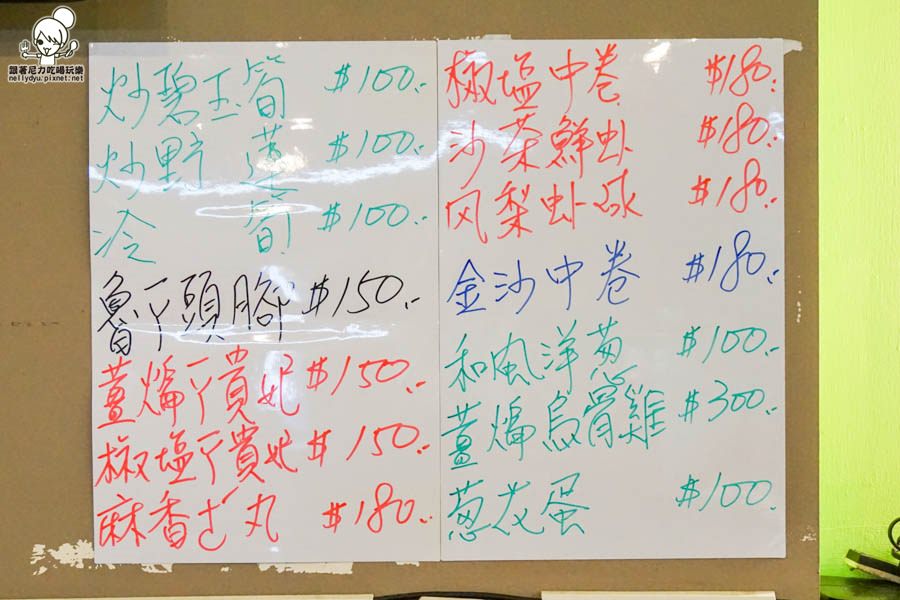 跟著尼力吃喝玩樂
nellydyu.pixnet.net
炒碧玉筍 $100.-
炒野蓮 $100.-
冷筍 $100.-
魯ㄚ頭腳 $150.-
薑煸ㄚ貴妃 $150.-
椒塩ㄚ貴妃 $150.-
麻香古丸 $180.-
椒塩中卷 $180.-
沙茶鮮虾 $180.-
风梨虾球 $180.-
金沙中卷 $180.-
和風洋葱 $100.-
薑煸烏骨雞 $300.-
葱花蛋 $100